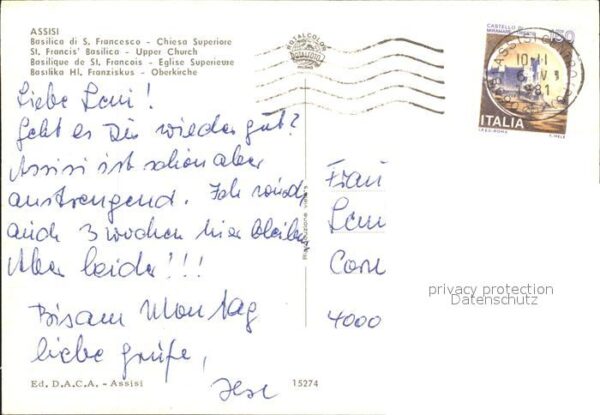 ASSISI
Basilica di S. Francesco - Chiesa Superiore
St. Francis' Basilica - Upper Church
Basilique de St. Francois - Eglise Superieure
Basilika Hl. Franziskus - Oberkirche
ROTALCOLOR
CASTELLO DI
MIRAMARE
150
ASSISI
10-11
6. IV
1981
ITALIA
I.P.Z.S. ROMA
Liebe Leni!
Geht es Dir wieder gut?
Assisi ist schön aber
anstrengend. Ich würde
auch 3 wochen hier bleiben
Aber leider!!!
Bis am Montag
liebe grüße,
Ilse
Frau
Leni
4000
Riproduzione vietata
privacy protection
Datenschutz
Ed. D.A.C.A. - Assisi
15274